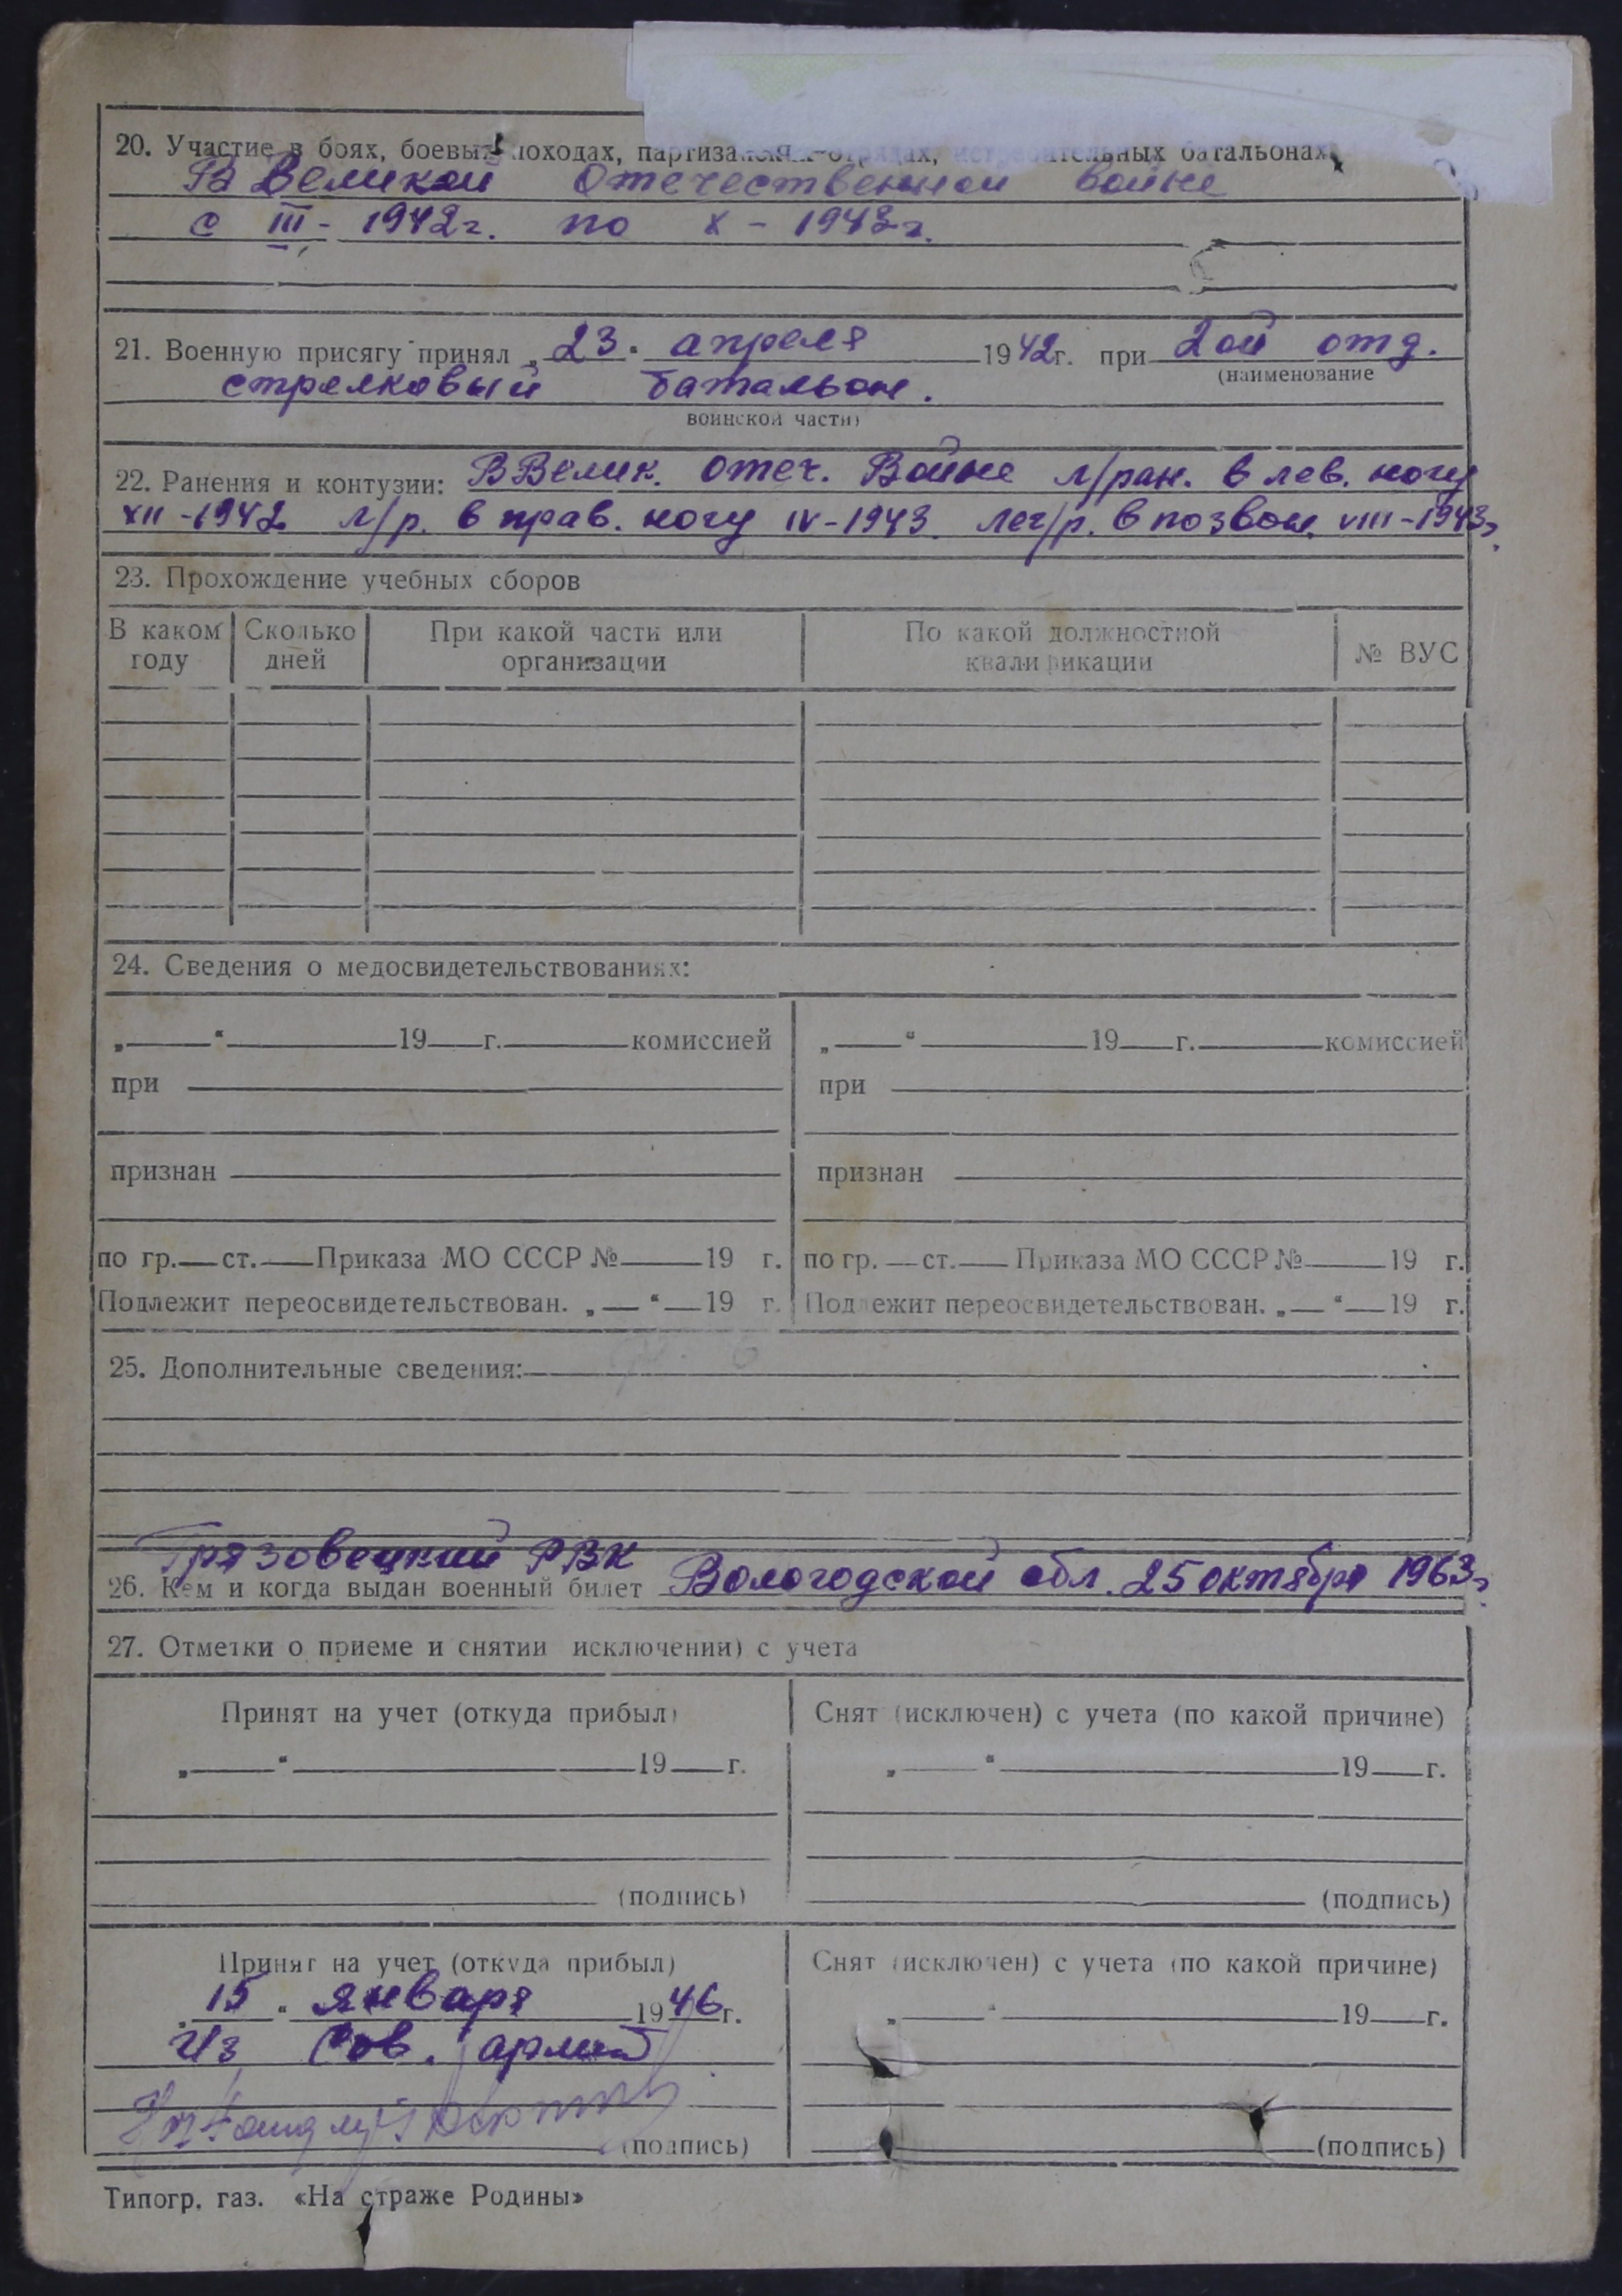 20. Участие в боях, боевых походах, партизанских отрядах, истребительных батальонах
В Великой Отечественной войне
с III - 1942г. по X - 1943г.
21. Военную присягу принял „23" апреля 1942г. при 2ой отд.
(наименование
стрелковый батальон.
воинской части)
22. Ранения и контузии: В Велик. Отеч. Войне л/ран. в лев. ногу
XII-1942 л/р. в прав. ногу IV-1943. лег/р. в позвон. VIII-1943г.
23. Прохождение учебных сборов
В каком Сколько При какой части или По какой должностной № ВУС
году дней организации квалификации
24. Сведения о медосвидетельствованиях:
„ “ 19 г. комиссией „ “ 19 г. комиссией
при при
признан признан
по гр. ст. Приказа МО СССР № 19 г. по гр. ст. Приказа МО СССР № 19 г.
Подлежит переосвидетельствован. „ “ 19 г. Подлежит переосвидетельствован. „ “ 19 г.
25. Дополнительные сведения:
Грязовецкий РВК
26. Кем и когда выдан военный билет Вологодской обл. 25 октября 1963г.
27. Отметки о приеме и снятии исключении) с учета
Принят на учет (откуда прибыл) Снят (исключен) с учета (по какой причине)
„ “ 19 г. „ “ 19 г.
(подпись) (подпись)
Принят на учет (откуда прибыл) Снят (исключен) с учета (по какой причине)
15 “ января 1946г. „ “ 19 г.
Из Сов. армии
(подпись) (подпись)
Типогр. газ. «На страже Родины»